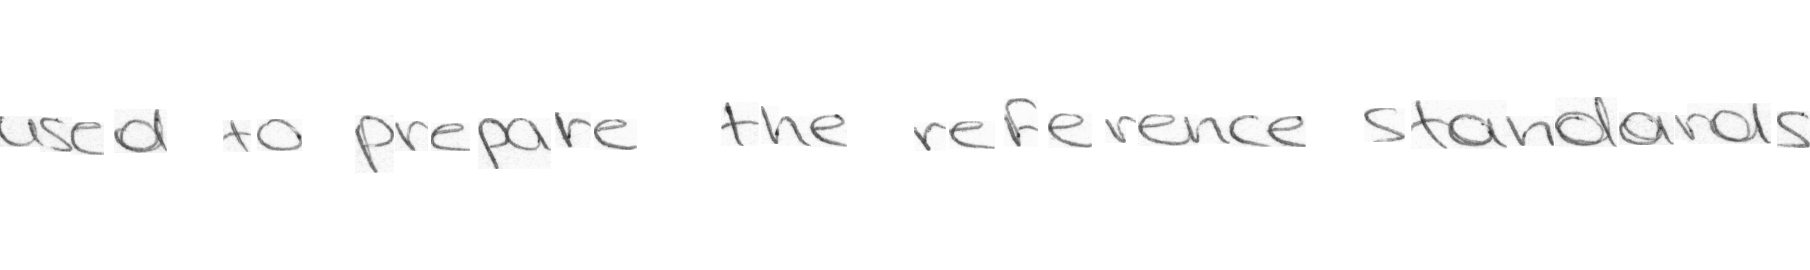 used to prepare the reference standards